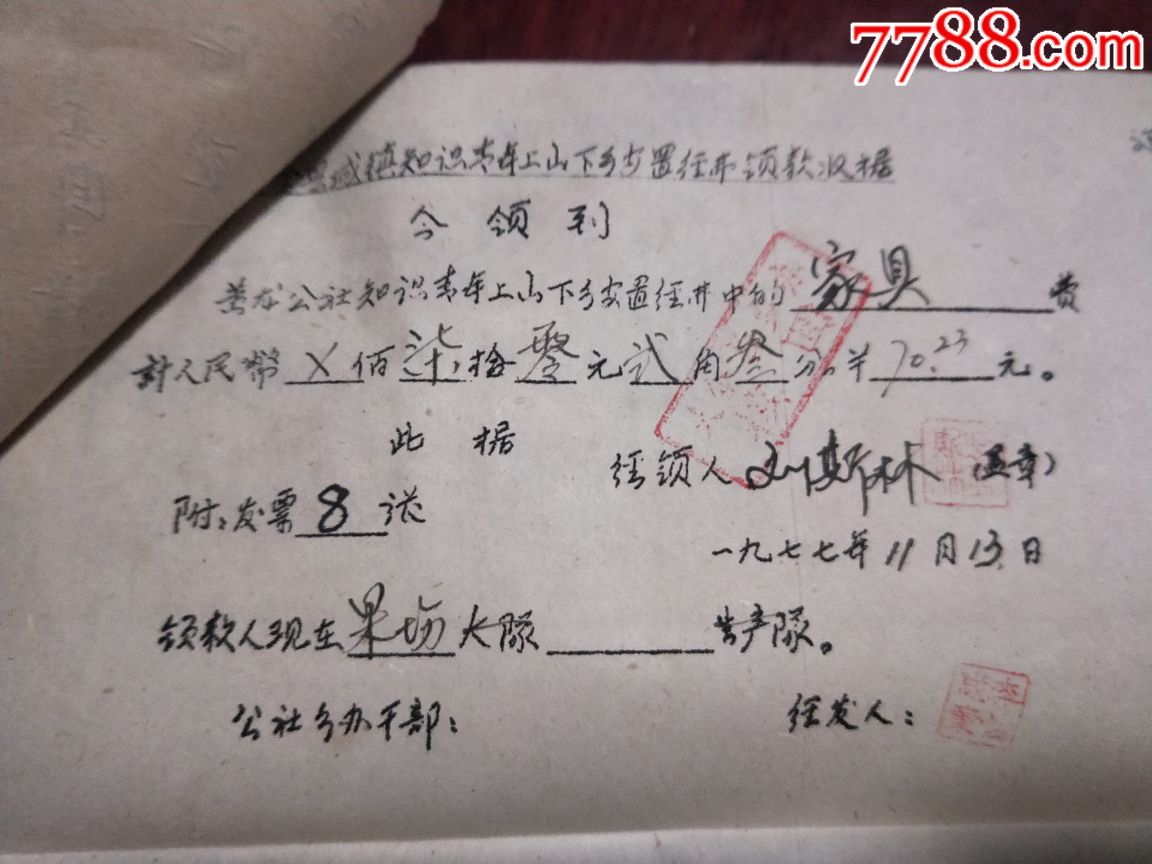 7788.com
城镇知识青年上山下乡安置经费领款收据
今领到
公社知识青年上山下乡安置经费中的家具费
计人民币X佰柒拾零元弍角叁分.¥70.23元。
此据
经领人 斯林(盖章)
附:发票8张
一九七七年11月13日
领款人现在果场大队 生产队。
公社乡办干部: 经发人: